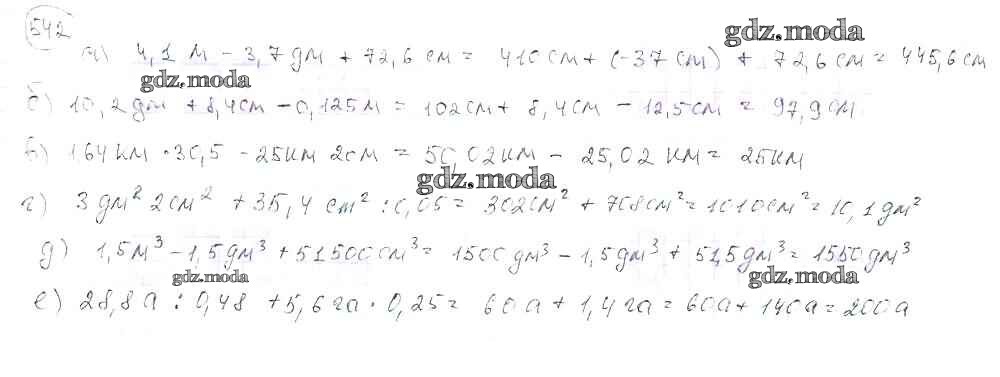 542
gdz.moda
а) 4,1 м - 3,7 дм + 72,6 см = 410 см + (-37 см) + 72,6 см = 445,6 см
gdz.moda
б) 10,2 дм + 8,4 см - 0,125 м = 102 см + 8,4 см - 12,5 см = 97,9 см
в) 1,64 км · 30,5 - 25 км 2 см = 50,02 км - 25,02 км = 25 км
gdz.moda
г) 3 дм² 2 см² + 35,4 см² : 0,05 = 302 см² + 708 см² = 1010 см² = 10,1 дм²
д) 1,5 м³ - 1,5 дм³ + 51500 см³ = 1500 дм³ - 1,5 дм³ + 51,5 дм³ = 1550 дм³
gdz.moda gdz.moda
е) 28,8 а : 0,48 + 5,6 га · 0,25 = 60 а + 1,4 га = 60 а + 140 а = 200 а